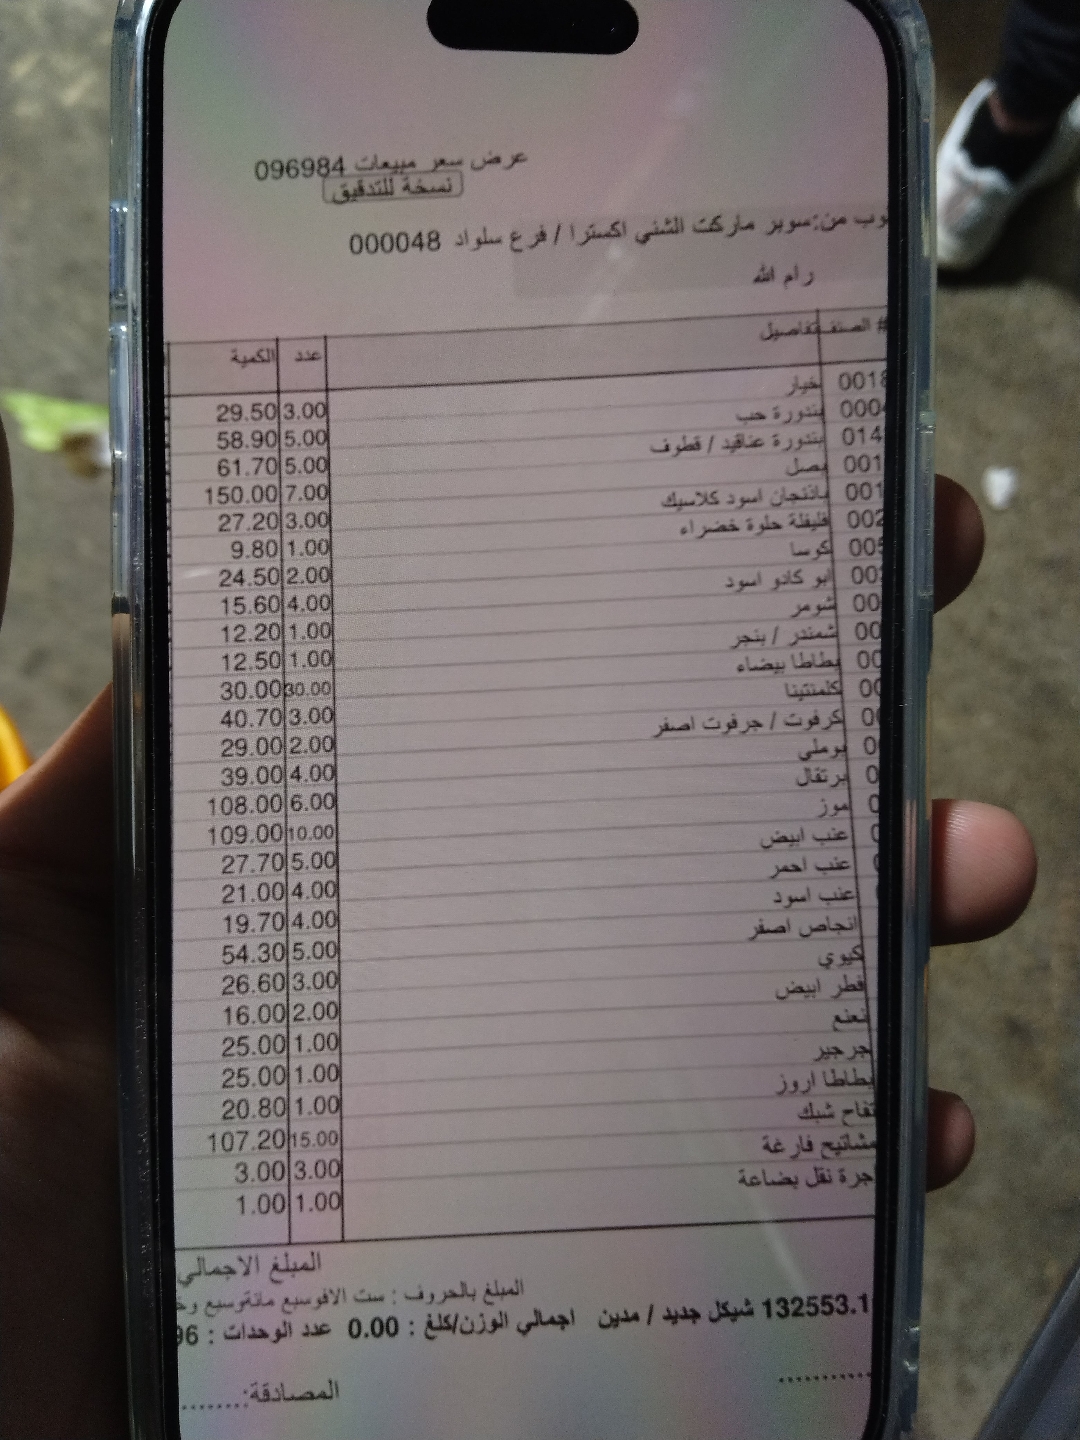 عرض سعر مبيعات 096984
نسخة للتدقيق
من:سوبر ماركت الشني اكسترا / فرع سلواد 000048
رام الله
# الصنف تفاصيل عدد الكمية
0018 خيار 3.00 29.50
0004 بندورة حب 5.00 58.90
014 بندورة عناقيد / قطوف 5.00 61.70
001 بصل 7.00 150.00
001 باذنجان اسود كلاسيك 3.00 27.20
002 فليفلة حلوة خضراء 1.00 9.80
005 كوسا 2.00 24.50
00 ابو كادو اسود 4.00 15.60
00 شومر 1.00 12.20
00 شمندر / بنجر 1.00 12.50
00 بطاطا بيضاء 30.00 30.00
00 كلمنتينا 3.00 40.70
0 كرفوت / جرفوت اصفر 2.00 29.00
0 بوملي 4.00 39.00
0 برتقال 6.00 108.00
موز 10.00 109.00
عنب ابيض 5.00 27.70
عنب احمر 4.00 21.00
عنب اسود 4.00 19.70
انجاص اصفر 5.00 54.30
كيوي 3.00 26.60
فطر ابيض 2.00 16.00
نعنع 1.00 25.00
جرجير 1.00 25.00
بطاطا اروز 1.00 20.80
تفاح شبك 15.00 107.20
مشاتيح فارغة 3.00 3.00
اجرة نقل بضاعة 1.00 1.00
المبلغ الاجمالي
المبلغ بالحروف : ست الافوسبع مائةوسبع
132553.1 شيكل جديد / مدين اجمالي الوزن/كلغ : 0.00 عدد الوحدات : 96
المصادقة:........